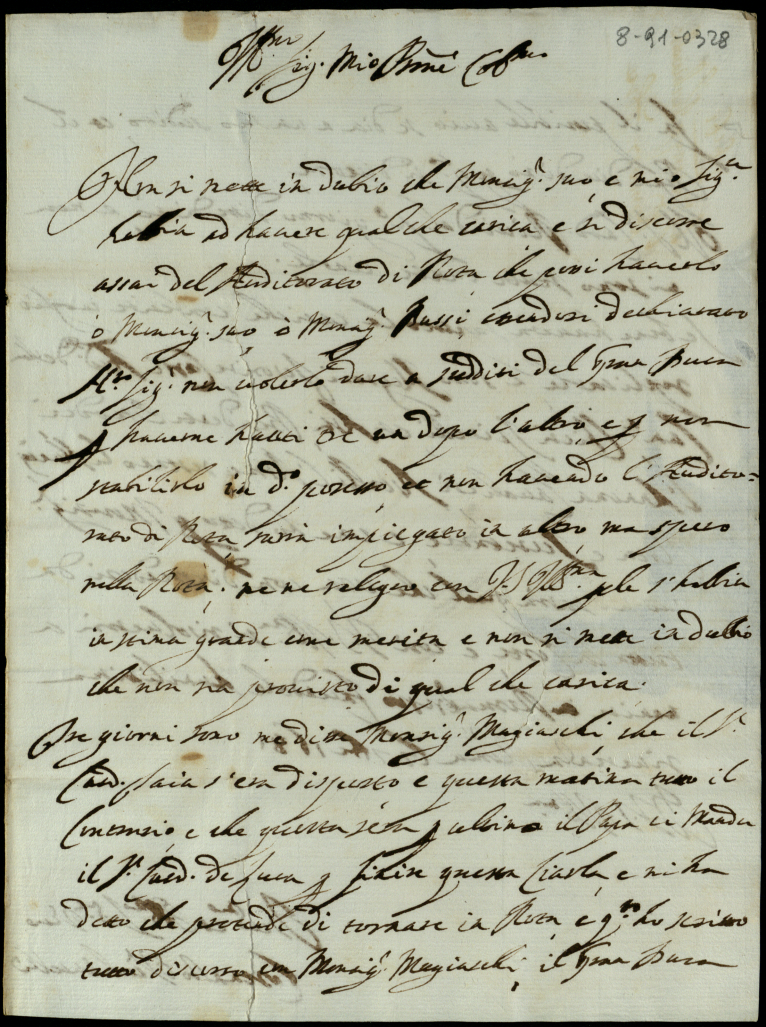 8-91-0328
Ill.mo Sig. Mio P.rone Col.mo
Non si mette in dubio che Monsig.r suo e mio Sig.re
habbia ad havere qualche carica e si discorre
assai del Auditorato di Rota che però haverlo
ò Monsig.r suo ò Monsig.r Passi, essendosi dechiarato
N.ro Sig.re non volerlo dare a sudditi del Gran Duca
p haverne hauti tre un dopo l'altro, e p non
stabilirlo in d.o possesso et non havendo l'Audito=
rato di Rota saria impiegato in altro ma spero
nella Rota. me ne rallegro con V.S. Ill.ma che s'habbia
in stima grande come merita e non si mette in dubbio
che non sia provisto di qual che carica.
Tre giorni sono me disse Monsig.r Magiaschi che il S.r
Card. s'era disposto e questa matina tutto il
Contrario, e che questa sera p ultimo il Papa ci manda
il S.r Card. de Luca p finire questa e mi ha
detto che pretende di tornare in Rota e q.to ho scritto
tutto discorso con Monsig.r Magiaschi, il Gran Duca